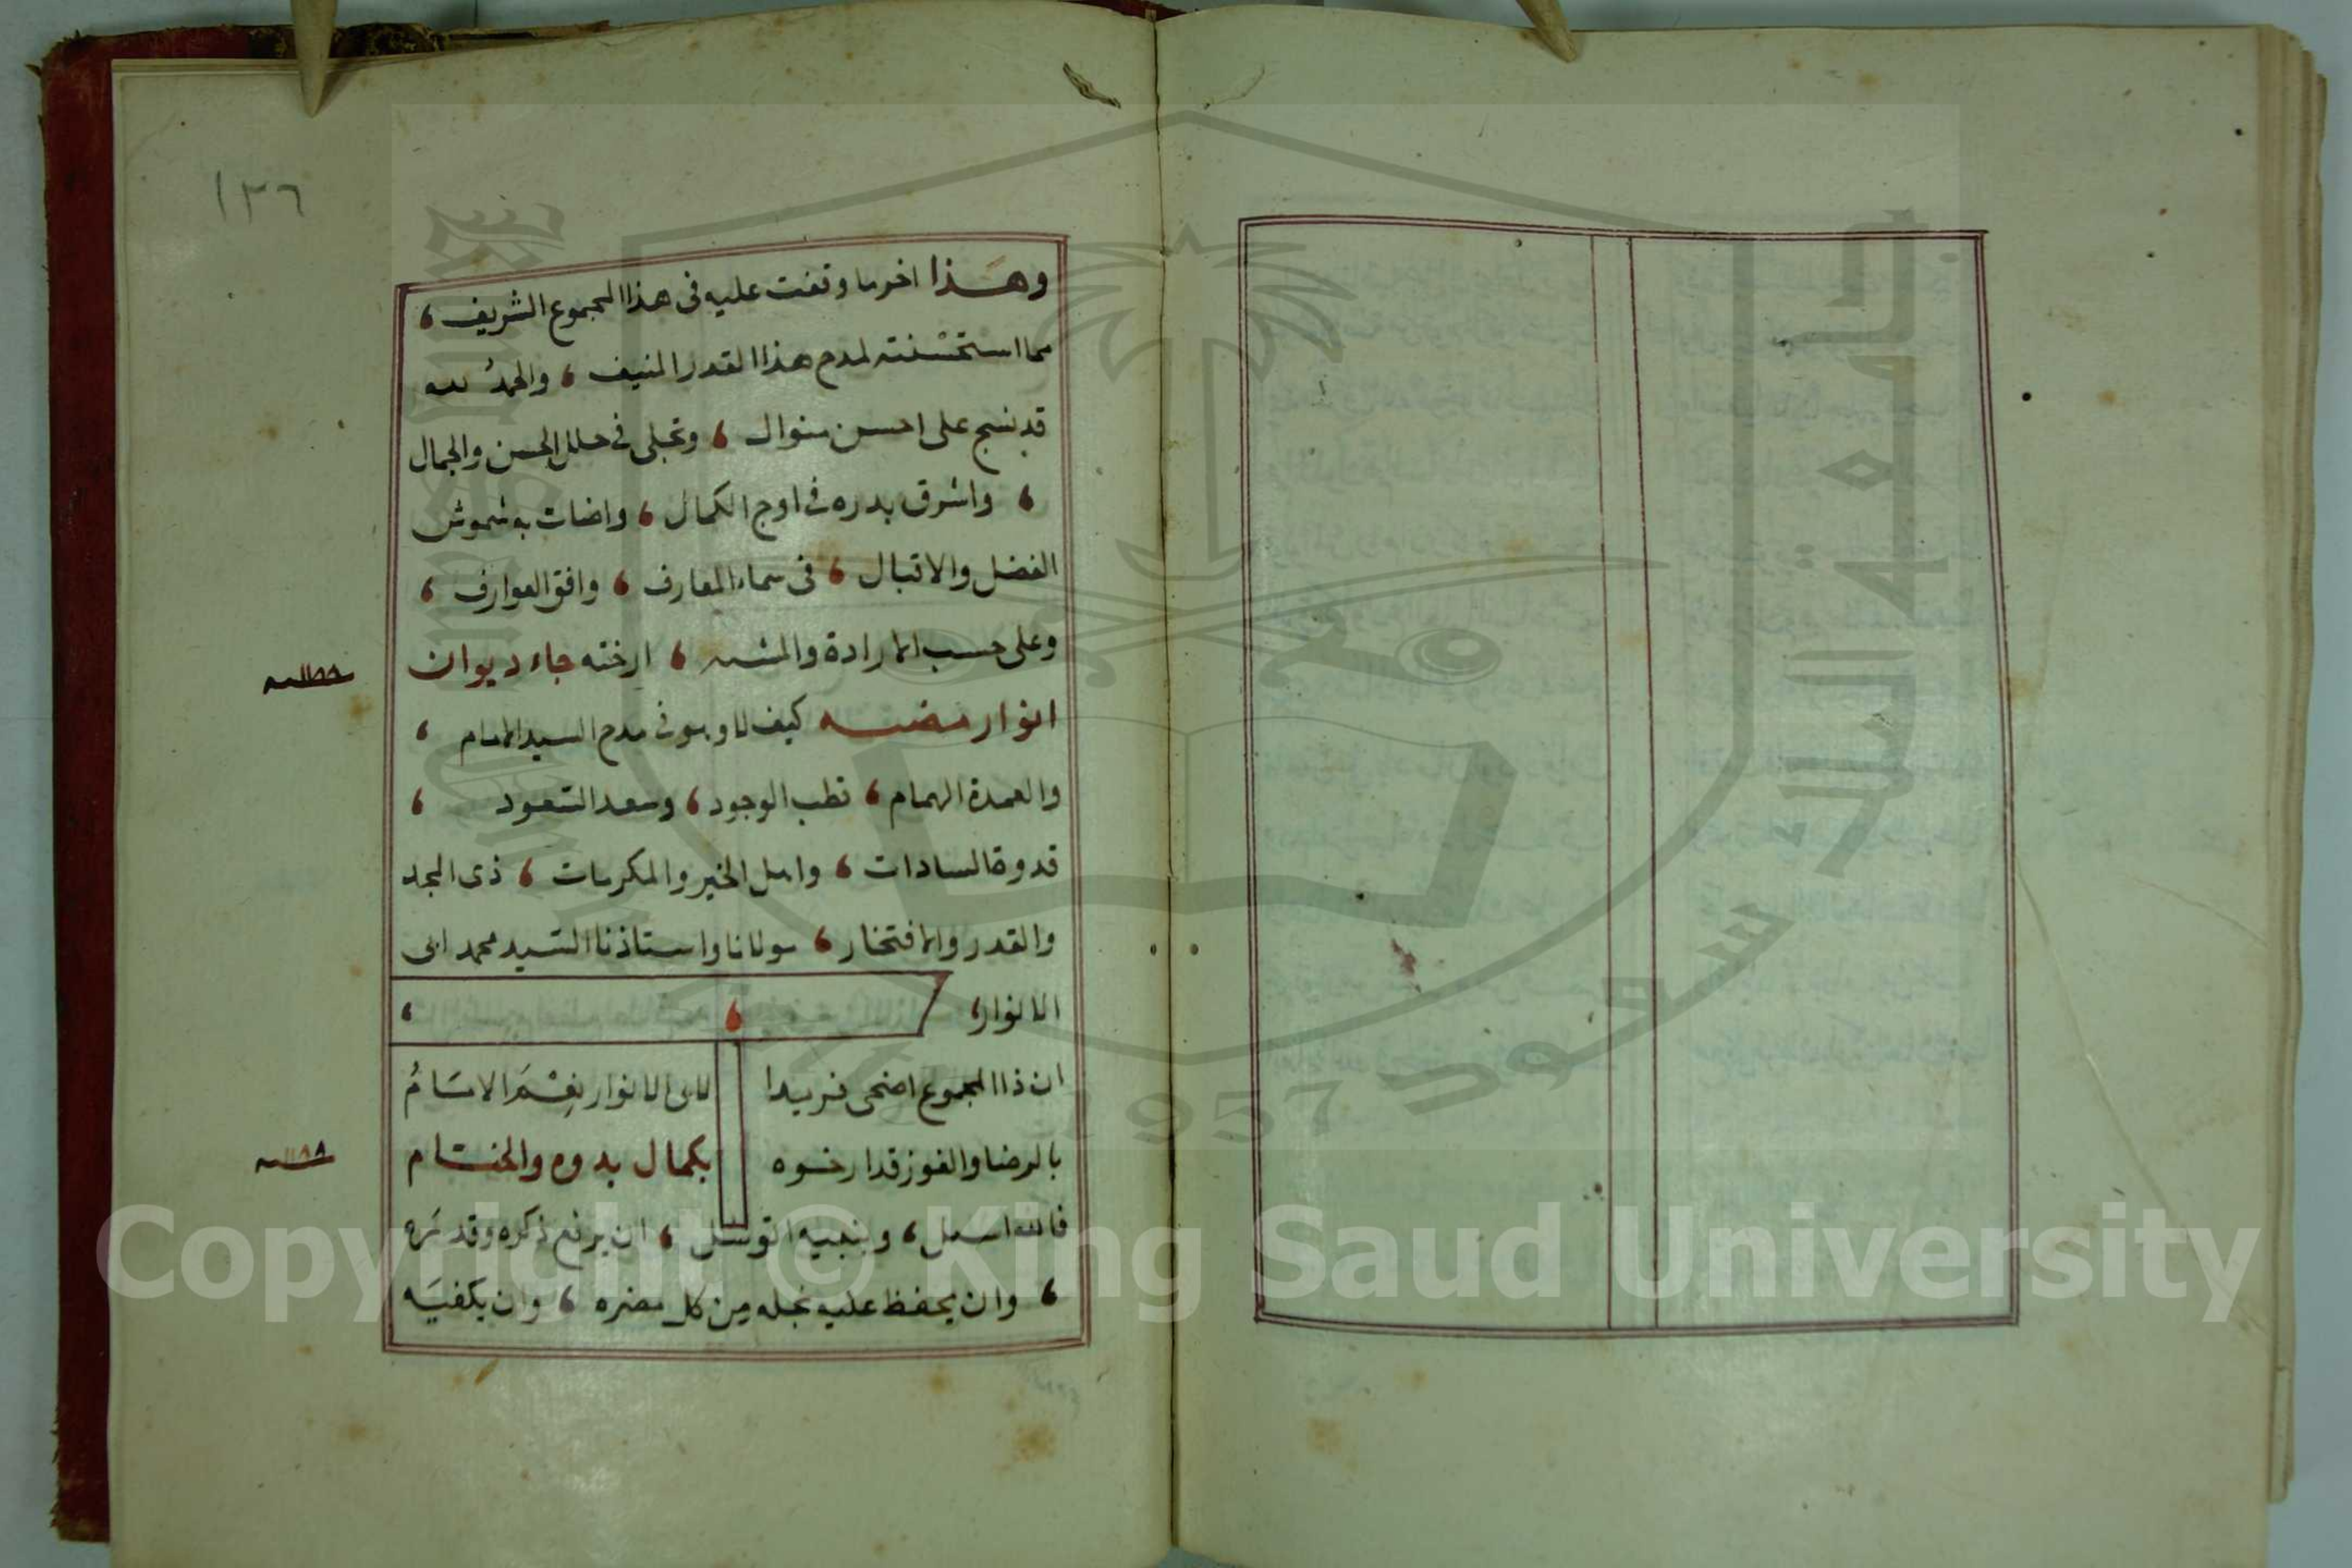 ١٣٦
وهذا اخر ما وقفت عليه فى هذا المجموع الشريف ،
مما استحسنته لمدح هذا القدر المنيف ، والحمد لله
قد نسج على احسن منوال ، وتجلى فى حلل الحسن والجمال
، واشرق بدره فى اوج الكمال ، واضات به شموش
الفضل والاقبال ، فى سماء المعارف ، وافق العوارف ،
وعلى حسب الارادة ، ارخته جاء ديوان
١١٨٨ سنه
انوار مضيه كيف لا وهو فى مدح السيد الامام ،
والعمدة الهمام ، قطب الوجود ، وسعد السعود ،
قدوة السادات ، واهل الخير والمكرمات ، ذى المجد
والقدر والافتخار ، مولانا واستاذنا السيد محمد ابى
الانوار ،
ان ذا المجموع اضحى فريدا لابى الانوار نعم الامام
بالرضا والفوز قد ارخوه بكمال بدوه والختام
١١٨٨ سنه
فالله اسال ، وبنبيه اتوسل ، ان يرفع ذكره وقدره
، وان يحفظ عليه نجله من كل مضره ، وان يكفيه
Copyright © King Saud University
جامعة الملك سعود
King Saud University
1957